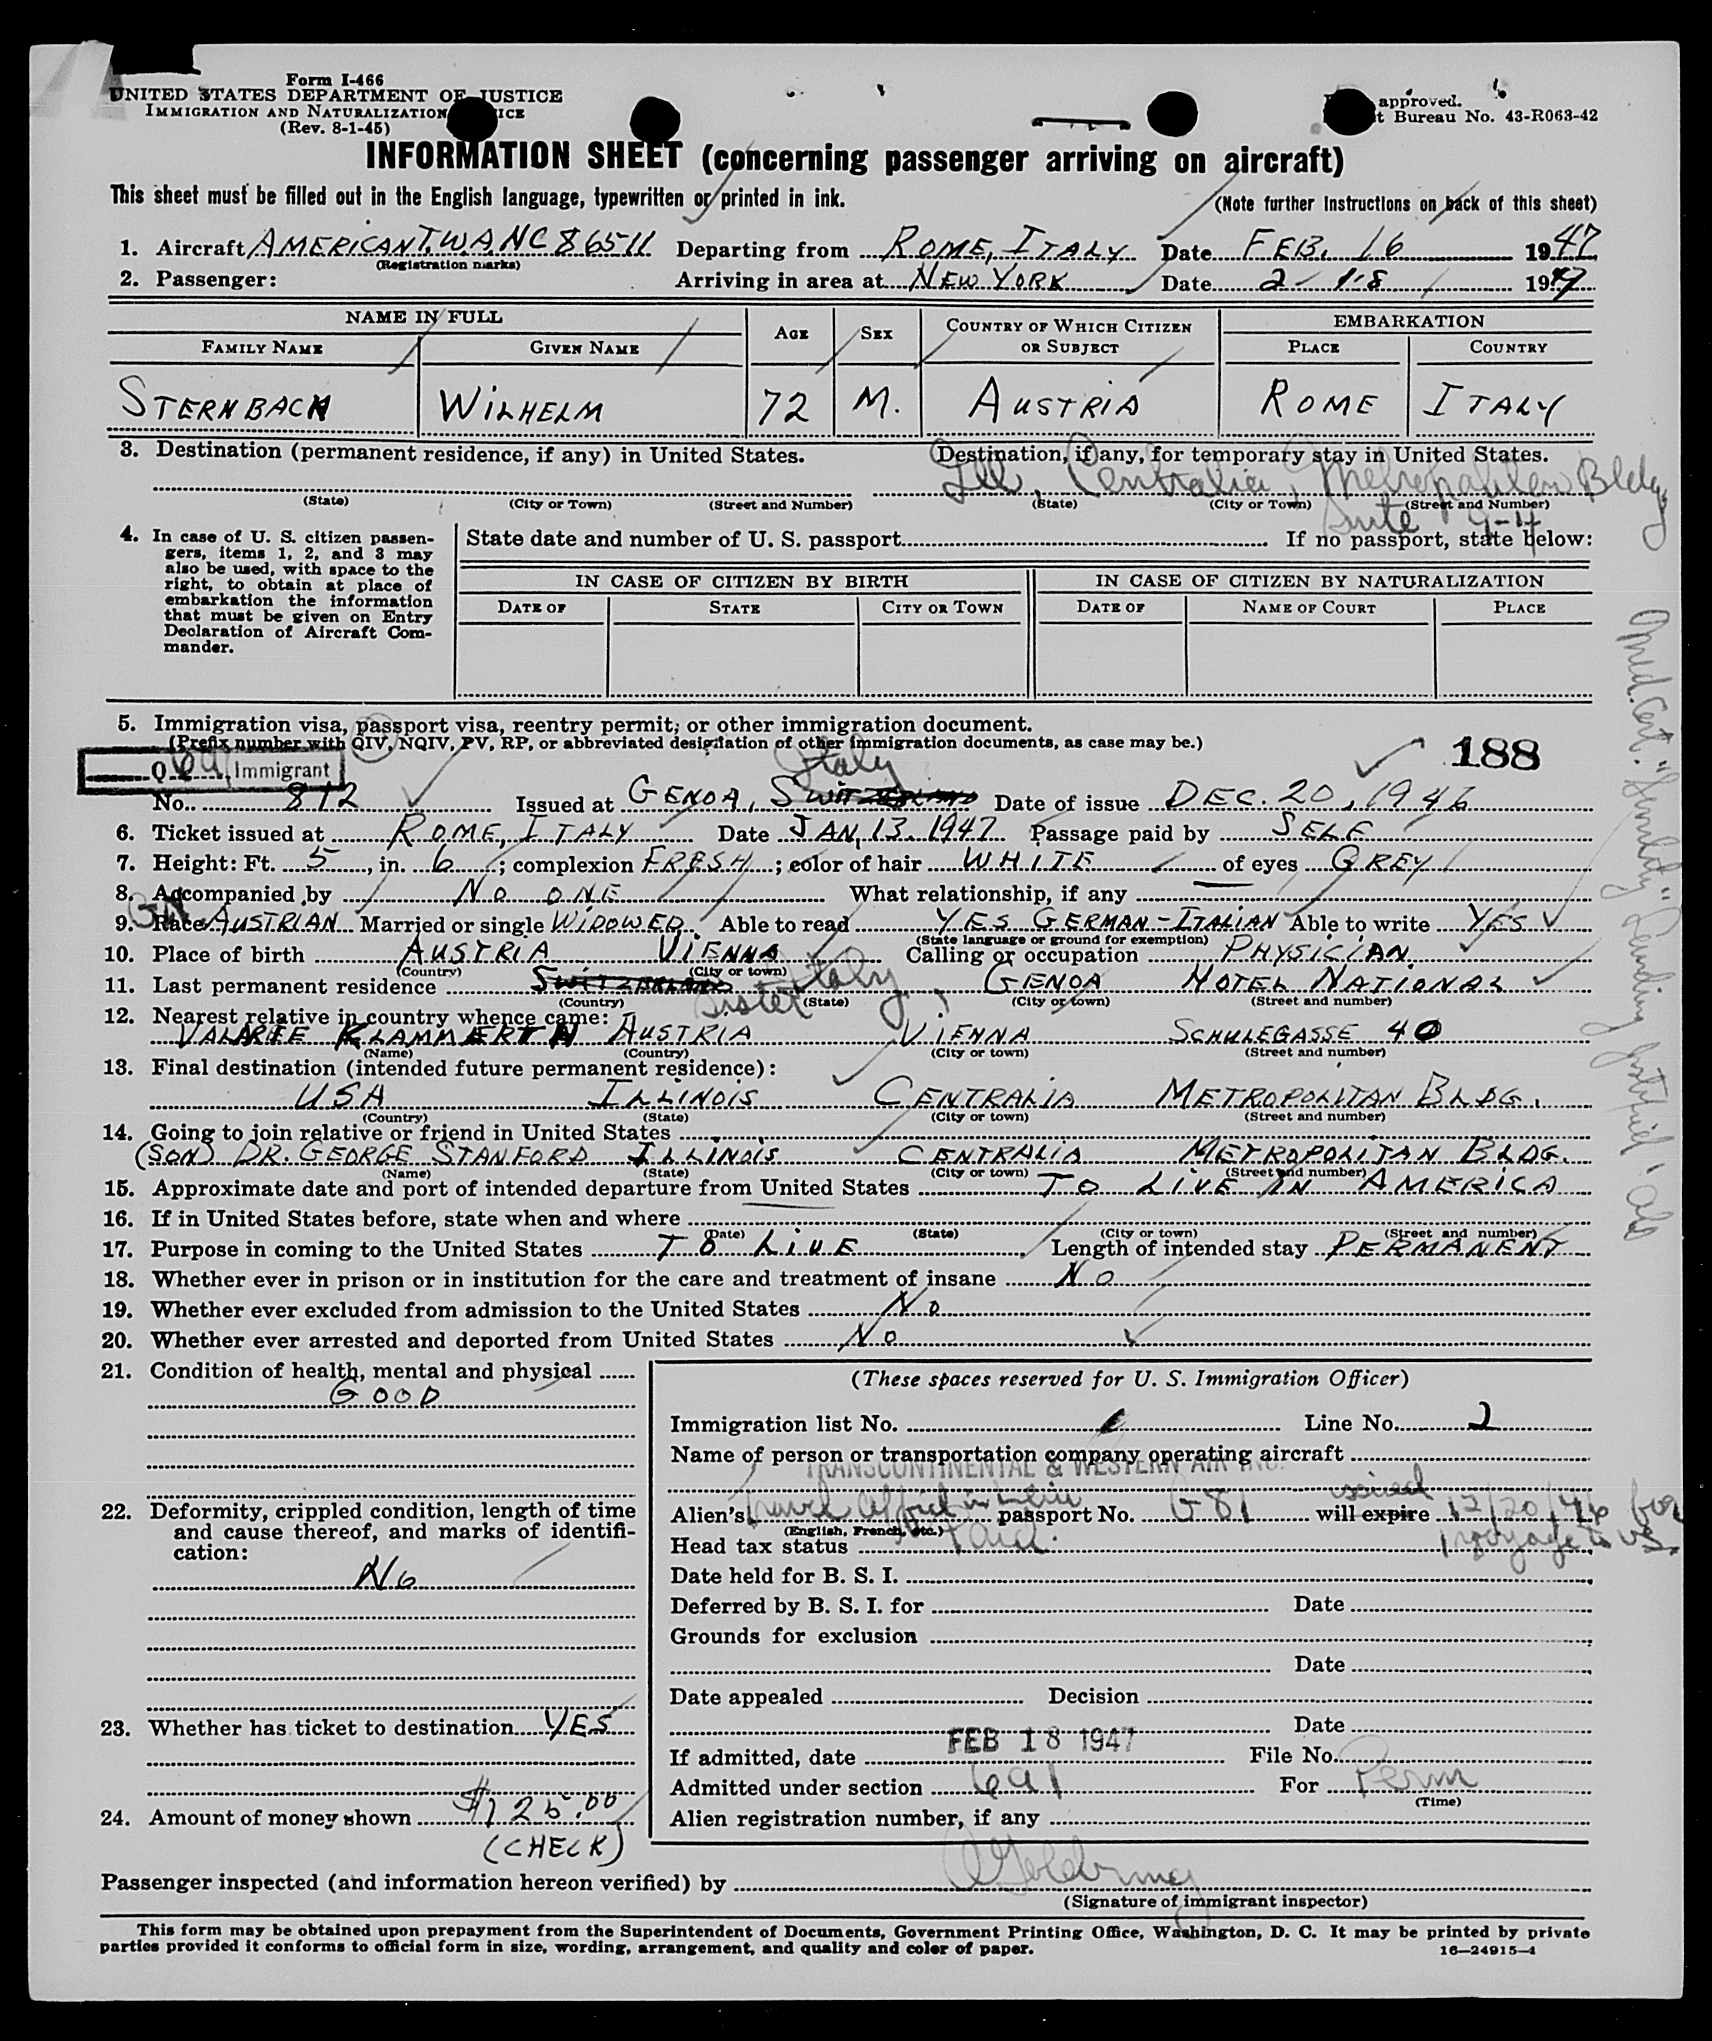 Form I-466
UNITED STATES DEPARTMENT OF JUSTICE
IMMIGRATION AND NATURALIZATION
(Rev. 8-1-45)
approved.
t Bureau No. 43-R063-42
INFORMATION SHEET (concerning passenger arriving on aircraft)
This sheet must be filled out in the English language, typewritten or printed in ink.
(Note further instructions on back of this sheet)
1. Aircraft AMERICAN T.W.A. NC 86511 Departing from ROME, ITALY Date FEB. 16 1947
(Registration marks)
2. Passenger: Arriving in area at NEW YORK Date 2-18 1947
NAME IN FULL AGE SEX COUNTRY OF WHICH CITIZEN OR SUBJECT EMBARKATION
FAMILY NAME GIVEN NAME PLACE COUNTRY
STERNBACH WILHELM 72 M. AUSTRIA ROME ITALY
3. Destination (permanent residence, if any) in United States. Destination, if any, for temporary stay in United States.
Ill, Centralia, Metropolitan Bldg
(State) (City or Town) (Street and Number) (State) (City or Town) (Street and Number)
Suite 9-4
4. In case of U. S. citizen passen-
gers, items 1, 2, and 3 may
also be used, with space to the
right, to obtain at place of
embarkation the information
that must be given on Entry
Declaration of Aircraft Com-
mander.
State date and number of U. S. passport If no passport, state below:
IN CASE OF CITIZEN BY BIRTH IN CASE OF CITIZEN BY NATURALIZATION
DATE OF STATE CITY OR TOWN DATE OF NAME OF COURT PLACE
5. Immigration visa, passport visa, reentry permit, or other immigration document.
(Prefix number with QIV, NQIV, PV, RP, or abbreviated designation of other immigration documents, as case may be.)
188
Q Immigrant
Italy
No. 812 Issued at GENOA, SWITZERLAND Date of issue DEC. 20, 1946
6. Ticket issued at ROME, ITALY Date JAN. 13. 1947 Passage paid by SELF
7. Height: Ft. 5, in. 6; complexion FRESH; color of hair WHITE of eyes GREY
8. Accompanied by NO ONE What relationship, if any —
9. Race AUSTRIAN Married or single WIDOWED Able to read YES GERMAN-ITALIAN Able to write YES
(State language or ground for exemption)
10. Place of birth AUSTRIA VIENNA Calling or occupation PHYSICIAN
(Country) (City or town)
11. Last permanent residence SWITZERLAND Italy, GENOA HOTEL NATIONAL
(Country) (State) (City or town) (Street and number)
12. Nearest relative in country whence came: sister
KLAMMERTH AUSTRIA VIENNA SCHULEGASSE 40
(Name) (Country) (City or town) (Street and number)
13. Final destination (intended future permanent residence):
USA ILLINOIS CENTRALIA METROPOLITAN BLDG.
(Country) (State) (City or town) (Street and number)
14. Going to join relative or friend in United States
(SON) DR. GEORGE STANFORD ILLINOIS CENTRALIA METROPOLITAN BLDG.
(Name) (State) (City or town) (Street and number)
15. Approximate date and port of intended departure from United States TO LIVE IN AMERICA
16. If in United States before, state when and where
(Date) (State) (City or town) (Street and number)
17. Purpose in coming to the United States TO LIVE Length of intended stay PERMANENT
18. Whether ever in prison or in institution for the care and treatment of insane NO
19. Whether ever excluded from admission to the United States NO
20. Whether ever arrested and deported from United States NO
21. Condition of health, mental and physical
GOOD
22. Deformity, crippled condition, length of time
and cause thereof, and marks of identifi-
cation:
No
23. Whether has ticket to destination YES
24. Amount of money shown $125.00
(CHECK)
(These spaces reserved for U. S. Immigration Officer)
Immigration list No. Line No. 2
Name of person or transportation company operating aircraft
TRANSCONTINENTAL & WESTERN AIR INC.
issued
Alien's travel affid in lieu passport No. G81 will expire 12/20/46 for
(English, French, etc.)
1 voyage to US.
Head tax status Paid.
Date held for B. S. I.
Deferred by B. S. I. for Date
Grounds for exclusion
Date
Date appealed Decision
Date
If admitted, date FEB 18 1947 File No.
Admitted under section 6a1 For Perm
(Time)
Alien registration number, if any
Passenger inspected (and information hereon verified) by
(Signature of immigrant inspector)
This form may be obtained upon prepayment from the Superintendent of Documents, Government Printing Office, Washington, D. C. It may be printed by private
parties provided it conforms to official form in size, wording, arrangement, and quality and color of paper.
16—24915-4
Med. Cert. "Senility" Landing